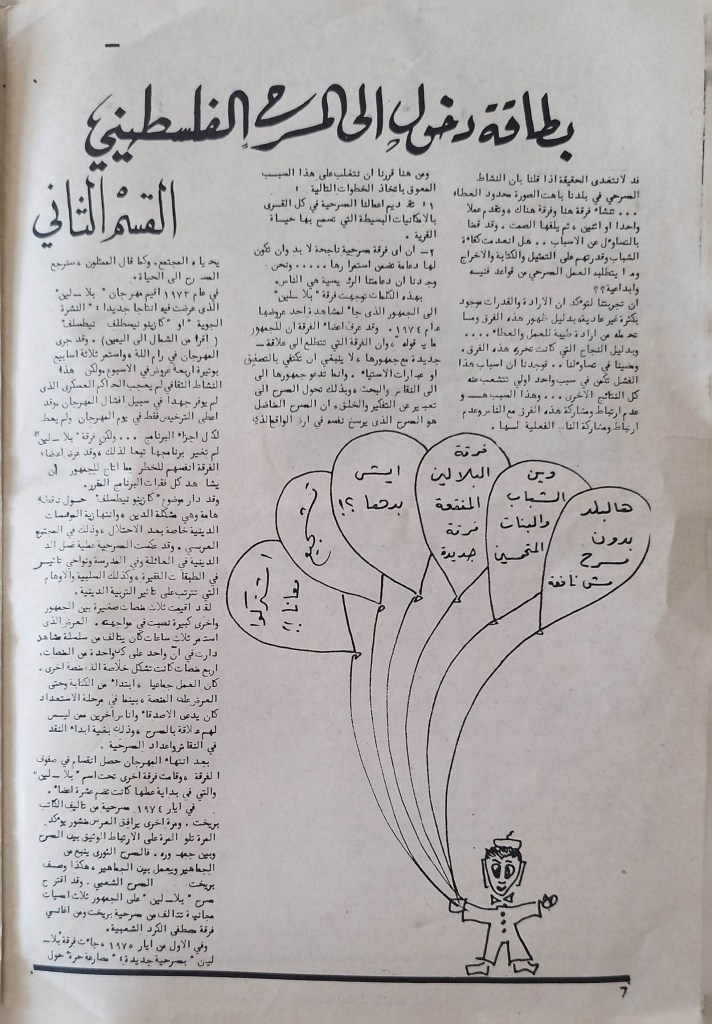 بطاقة دخول إلى المسرح الفلسطيني
القسم الثاني
قد لانتعدى الحقيقة اذا قلنا بان النشاط
المسرحي في بلدنا باهت الصورة محدود العطاء
... تنشأ فرقة هنا وفرقة هناك ، وتقدم عملا
واحدا او اثنين ، ثم يلفها الصمت. وقد قمنا
بالتساؤل عن الاسباب .. هل انعدمت كفاءة
الشباب وقدرتهم على التمثيل والكتابة والاخراج
وما يتطلبه العمل المسرحي من قواعد فنيه
وابداعية؟؟
ان تجربتنا لتؤكد ان الارادة والقدرات موجود
بكثرة غير عادية، بدليل ظهور هذه الفرق وما
تحمله من ارادة طيبة للعمل والعطاء....
وبدليل النجاح التي كانت تحرزه هذه الفرق.
ومضينا في تساؤلنا .. فوجدنا ان اسباب هذا
الفشل تكمن في سبب واحد اولي تتشعب عنه
كل النتائج الاخرى ... وهذا السبب هــو
عدم ارتباط ومشاركة هذه الفرق مع الناس وعدم
ارتباط ومشاركة الناس الفعلية لسها.
ومن هنا قررنا ان نتغلب على هذا السبب
المعوق باتخاذ الخطوات التالية :
١: تقديم اعمالنا المسرحية في كل القرى
بالامكانيات البسيطة التي تسمح بها حيــاة
القرية .
٢- ان اى فرقة مسرحية ناجحة لا بد وان تكون
لها دعامة تضمن استمرارها ..... ونحن
وجدنا ان دعامتنا الرئيسية هي الناس.
بهذه الكلمات توجهت فرقة " بلا-لين"
الى الجمهور الذى جاء لمشاهدة احد عروضها
عام ١٩٧٤. وقد عرف اعضاء الفرقة ان للجمهور
ما يقوله ، وان الفرقة التي تتطلع الى علاقة
جديدة مع جمهورها ، لا ينبغي ان تكتفي بالتصفيق
او عبارات الاستياء . وانما تدعو جمهورها الى
الى النقاش والبحث ، وبذلك تحول المسرح الى
تعبير عن التفكير والخلق. ان المسرح المناضل
هو المسرح الذى يرسخ نفسه في ارض الواقع الذي
يحياه المجتمع. وكما قال الممثلون ، سنرجع
المسرح الى الحياة.
في عام ١٩٧٣ اقيم مهرجان " بلا-لين"
الذى عرضت فيه انتاجا جديدا : " النشرة
الجوية " و " كازينو نيسطلف نيطسلف"
( اقرأ من الشمال الى اليمين) . وقد جرى
المهرجان في رام الله واستمر ثلاثة اسابيع
بوتيرة اربعة عروض في الاسبوع. ولكن هذا
النشاط الثقافي لم يعجب الحاكم العسكرى الذى
لم يوفر جهدا في سبيل افشال المهرجان وقد
اعطى الترخيص فقط في يوم المهرجان ولم يعط
لكل اجزاء البرنامج ... ولكن فرقة "بلا-لين"
لم تغير برنامجها تبعا لذلك ، وقد عرض اعضاء
الفرقة انفسهم للخطر مما اتاح للجمهور ان
يشاهد كل فقرات البرنامج المقرر.
وقد دار موضوع "كازينو نيطسلف" حول نقطة
هامة وهي مشكلة الدين ، وانتهازية المؤسسات
الدينية خاصة بعد الاحتلال ، وذلك في المجتمع
العربي . وقد عكست المسرحية عملية غسل الدماغ
الدينية في العائلة وفي المدرسة ونواحي تأثيرهم
في الطبقات الفقيرة ، وكذلك السلبية والاوهام
التي تترتب على تأثير التربية الدينية.
لقد اقيمت ثلاث منصات صغيرة بين الجمهور
واخرى كبيرة نصبت في مواجهته. العرض الذى
استمر ثلاث ساعات كان يتألف من سلسلة مشاهد
دارت في آن واحد على كل واحدة من المنصات.
اربع منصات كانت تشكل خلاصة الذ منصة اخرى .
كان العمل جماعيا ، ابتداء من الكتابة وحتى
العرض على المنصة، بينما في مرحلة الاستعداد
كان يدعى الاصدقاء واناس آخرين ممن ليس
لهم علاقة بالمسرح ، وذلك بغية ابداء النقد
في النقاش واعداد المسرحية .
بعد انتهاء المهرجان حصل انقسام في صفوف
الفرقة ، وقامت فرقة اخرى تحت اسم "بلا-لين"
والتي في بداية عملها كانت تضم عشرة اعضاء.
في ايار ١٩٧٤ مسرحية من تأليف الكاتب
بريخت. ومرة اخرى يرافق العرض منشور يؤكد
المرة تلو المرة على الارتباط الوثيق بين المسرح
وبين جمهوره. فالمسرح الثورى ينبع من
الجماهير ويعمل بين الجماهير ، هكذا وصف
بريخت المسرح الشعبي. وقد اقترح
مسرح "بلا-لين" على الجمهور ثلاث امسيات
مجانية تتألف من مسرحية بريخت ومن اغاني
فرقة مصطفى الكرد الشعبية.
وفي الاول من ايار ١٩٧٥ ، جاءت فرقة "بلا-
لين " بمسرحية جديدة: " مصارعة حرة " حول
اشتركوا معانا !!
تشجيع
ايش بدهما ؟!
فرقة البلالين المنفتحة فرقة جديدة
وين الشباب والبنات المتحمسين
هالبلد بدون مسرح مش نافعة
7